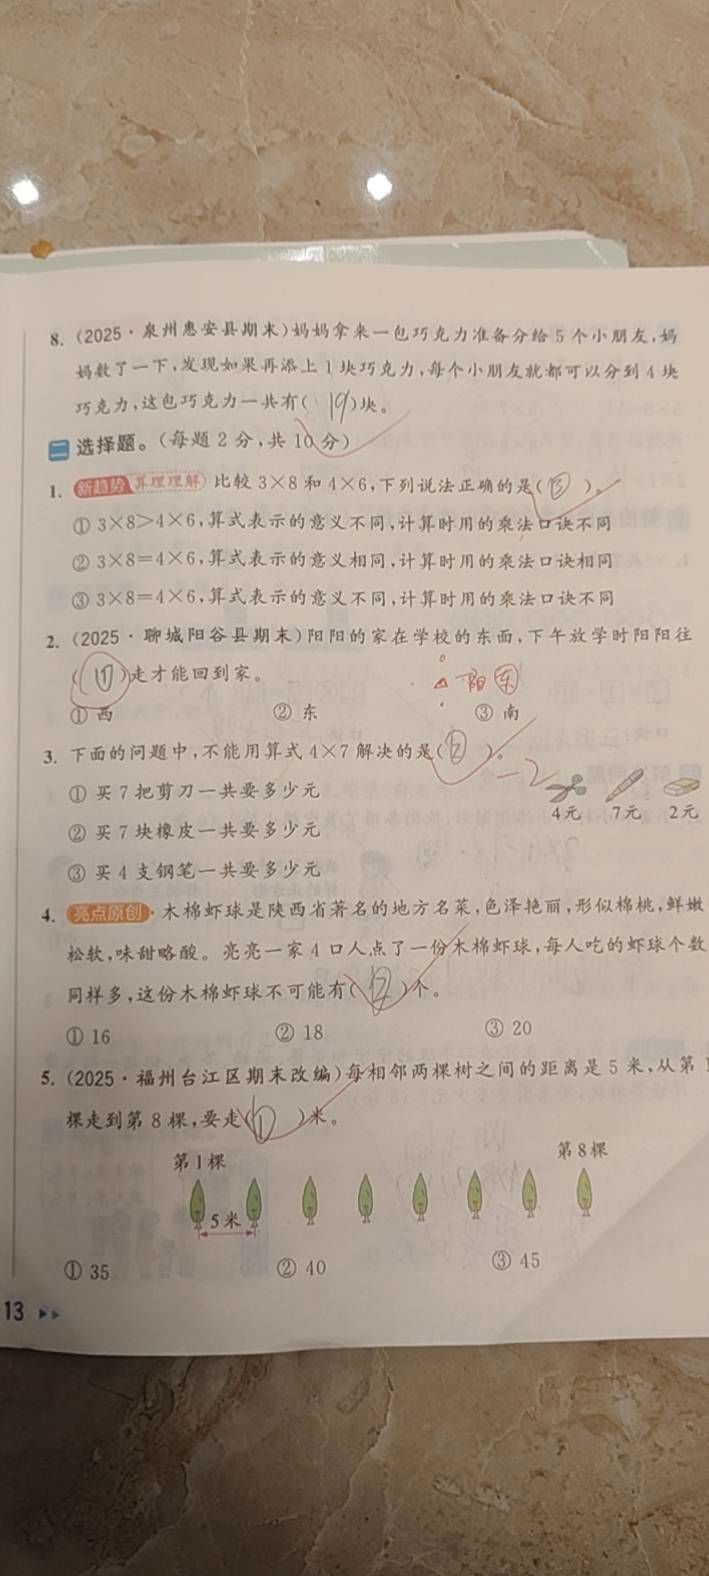 8. (2025·泉州惠安县期末)妈妈拿来一包巧克力准备分给 5 个小朋友,妈
妈数了一下,发现如果再添上 1 块巧克力,每个小朋友就都可以分到 4 块
巧克力,这包巧克力一共有( 19 )块。
二 选择题。(每题 2 分,共 10 分)
1. 新趋势 算理理解 比较 3×8 和 4×6,下列说法正确的是( ③ )。
① 3×8>4×6,算式表示的意义不同,计算时用的乘法口诀不同
② 3×8=4×6,算式表示的意义相同,计算时用的乘法口诀相同
③ 3×8=4×6,算式表示的意义不同,计算时用的乘法口诀不同
2. (2025·聊城阳谷县期末)阳阳的家在学校的东面,下午放学时阳阳往
( ① )走才能回到家。
阳 东
① 西 ② 东 ③ 南
3. 下面的问题中,不能用算式 4×7 解决的是( ② )。
-2
① 买 7 把剪刀一共要多少元
4元 7元 2元
② 买 7 块橡皮一共要多少元
③ 买 4 支钢笔一共要多少元
4. 亮点原创·木棉虾球是陕西省著名的地方名菜,色泽艳丽,形似棉桃,鲜嫩
松软,味甜略酸。亮亮一家 4 口人点了一份木棉虾球,每人吃的虾球个数
同样多,这份木棉虾球不可能有( ② )个。
① 16 ② 18 ③ 20
5. (2025·福州台江区期末改编)每相邻两棵树之间的距离是 5 米,从第 1
棵走到第 8 棵,要走( ① )米。
第 1 棵 第 8 棵
5 米
① 35 ② 40 ③ 45
13